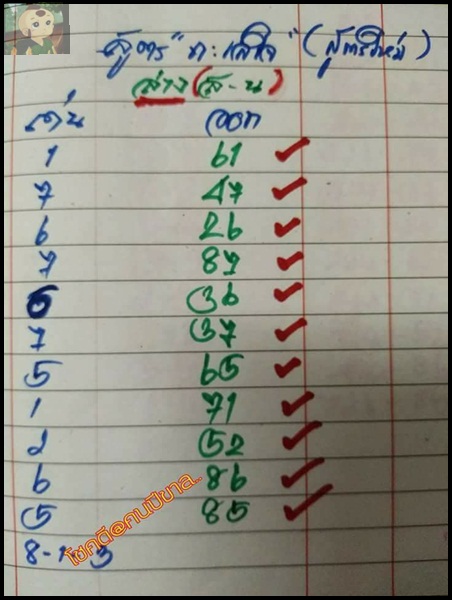 สูตร " กะเลใจ " (สูตรใหม่)
ล่าง (ส-น)
เด่น ออก
1 61
7 47
6 26
7 87
6 36
7 37
5 65
1 71
2 52
6 86
5 85
โชคดี@คนปีขาล..
8-1-3